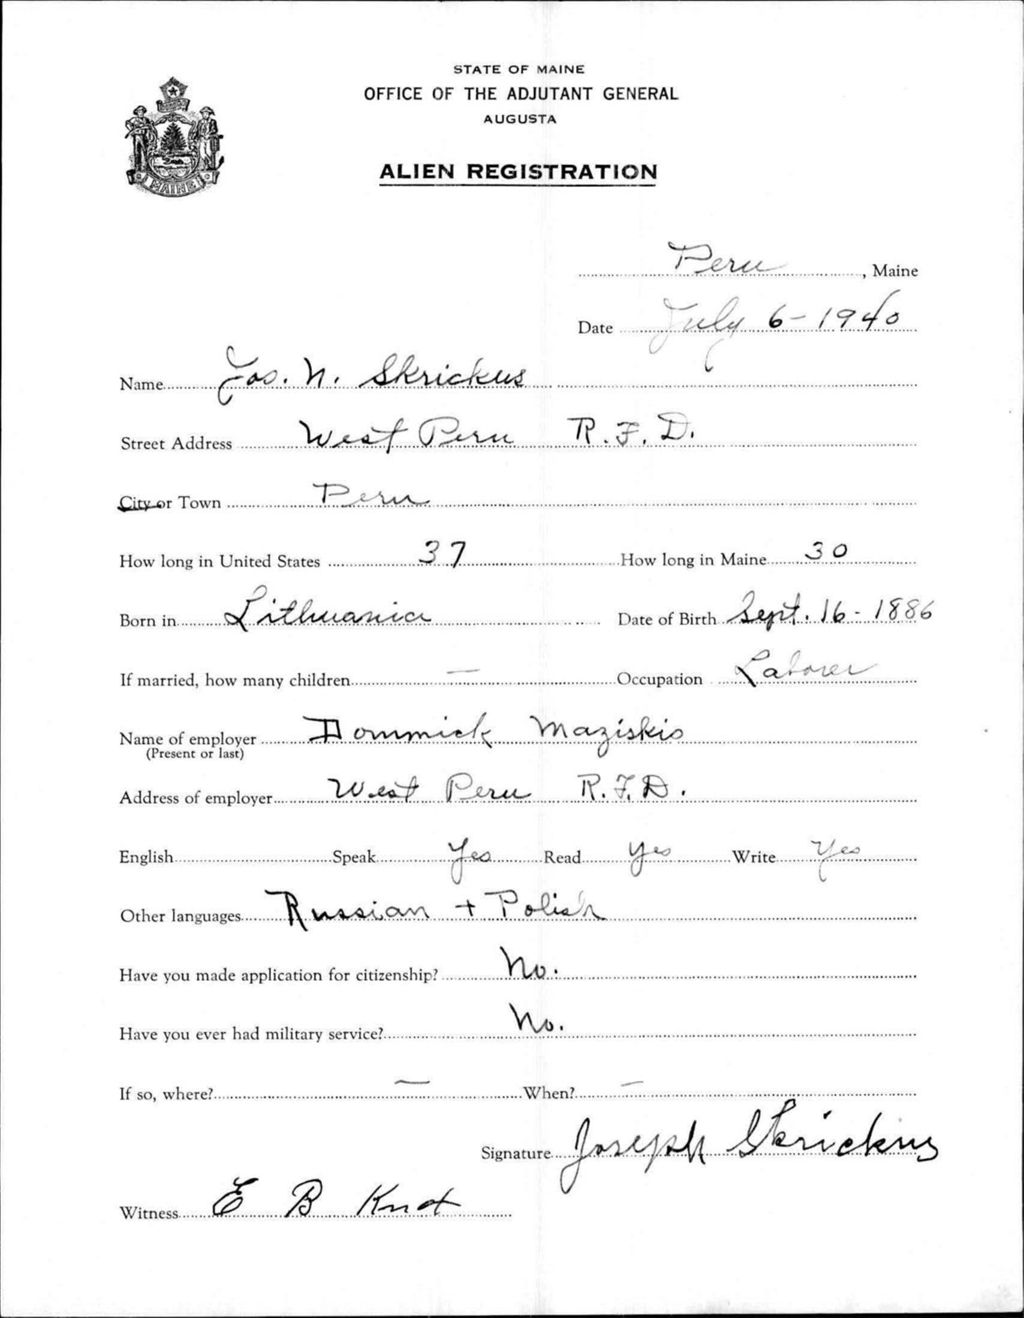 STATE OF MAINE
OFFICE OF THE ADJUTANT GENERAL
AUGUSTA
ALIEN REGISTRATION
MAINE
Peru, Maine
Date July 6-1940
Name Jos. N. Skrickus
Street Address West Peru R.F.D.
City or Town Peru
How long in United States 37 How long in Maine 30
Born in Lithuania Date of Birth Sept. 16-1886
If married, how many children — Occupation Laborer
Name of employer Dommick Maziskis
(Present or last)
Address of employer West Peru R.F.D.
English Speak Yes Read Yes Write Yes
Other languages Russian + Polish
Have you made application for citizenship? No.
Have you ever had military service? No.
If so, where? — When? —
Signature Joseph Skrickus
Witness E B Knot